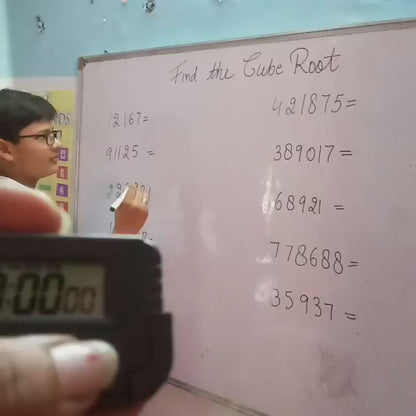 Find the Cube Root
12167=
91125 =
421875=
389017=
68921 =
778688=
35937 =
:00:00